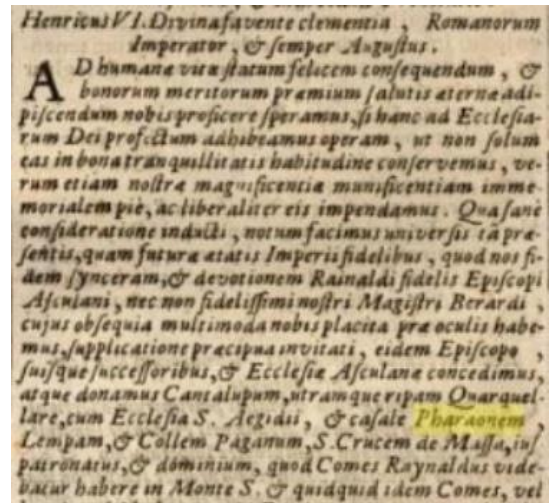 Henricus VI. Divina favente clementia, Romanorum
Imperator, & semper Augustus.
AD humanæ vitæ statum felicem consequendum, &
bonorum meritorum præmium salutis æternæ adi-
piscendum nobis proficere speramus, si hanc ad Ecclesia-
rum Dei profectum adhibeamus operam, ut non solum
eas in bona tranquillitatis habitudine conservemus, ve-
rum etiam nostræ magnificentiæ munificentiam imme-
morialem piè, ac liberaliter eis impendamus. Qua sanè
consideratione inducti, notum facimus universis tā præ-
sentis, quam futuræ ætatis Imperii fidelibus, quod nos fi-
dem synceram, & devotionem Rainaldi fidelis Episcopi
Asculani, nec non fidelissimi nostri Magistri Berardi,
cujus obsequia multimoda nobis placita præ oculis habe-
mus, supplicatione præcipua invitati, eidem Episcopo,
suisque successoribus, & Ecclesiæ Asculanæ concedimus,
atque donamus Cantalupum, utramque ripam Quarquel-
lare, cum Ecclesia S. Aegidii, & casale Pharaonem,
Lempam, & Collem Paganum, S. Crucem de Massa, jus
patronatus, & dominium, quod Comes Raynaldus vide-
batur habere in Monte S. & quidquid idem Comes, vel